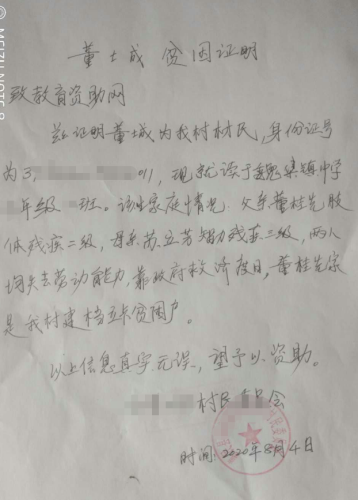 董士成 贫困证明
致教育资助网
兹证明董士成为我村村民，身份证号
为3, 011，现就读于魏集镇中学
年级 班。该生家庭情况：父亲董桂先肢
体残疾二级，母亲苏立芳智力残疾二级，两人
均失去劳动能力，靠政府救济度日，董桂先家
是我村建档立卡贫困户。
以上信息真实无误，望予以资助。
村民委员会
时间：2020年8月4日
MEIZU NOTE 9